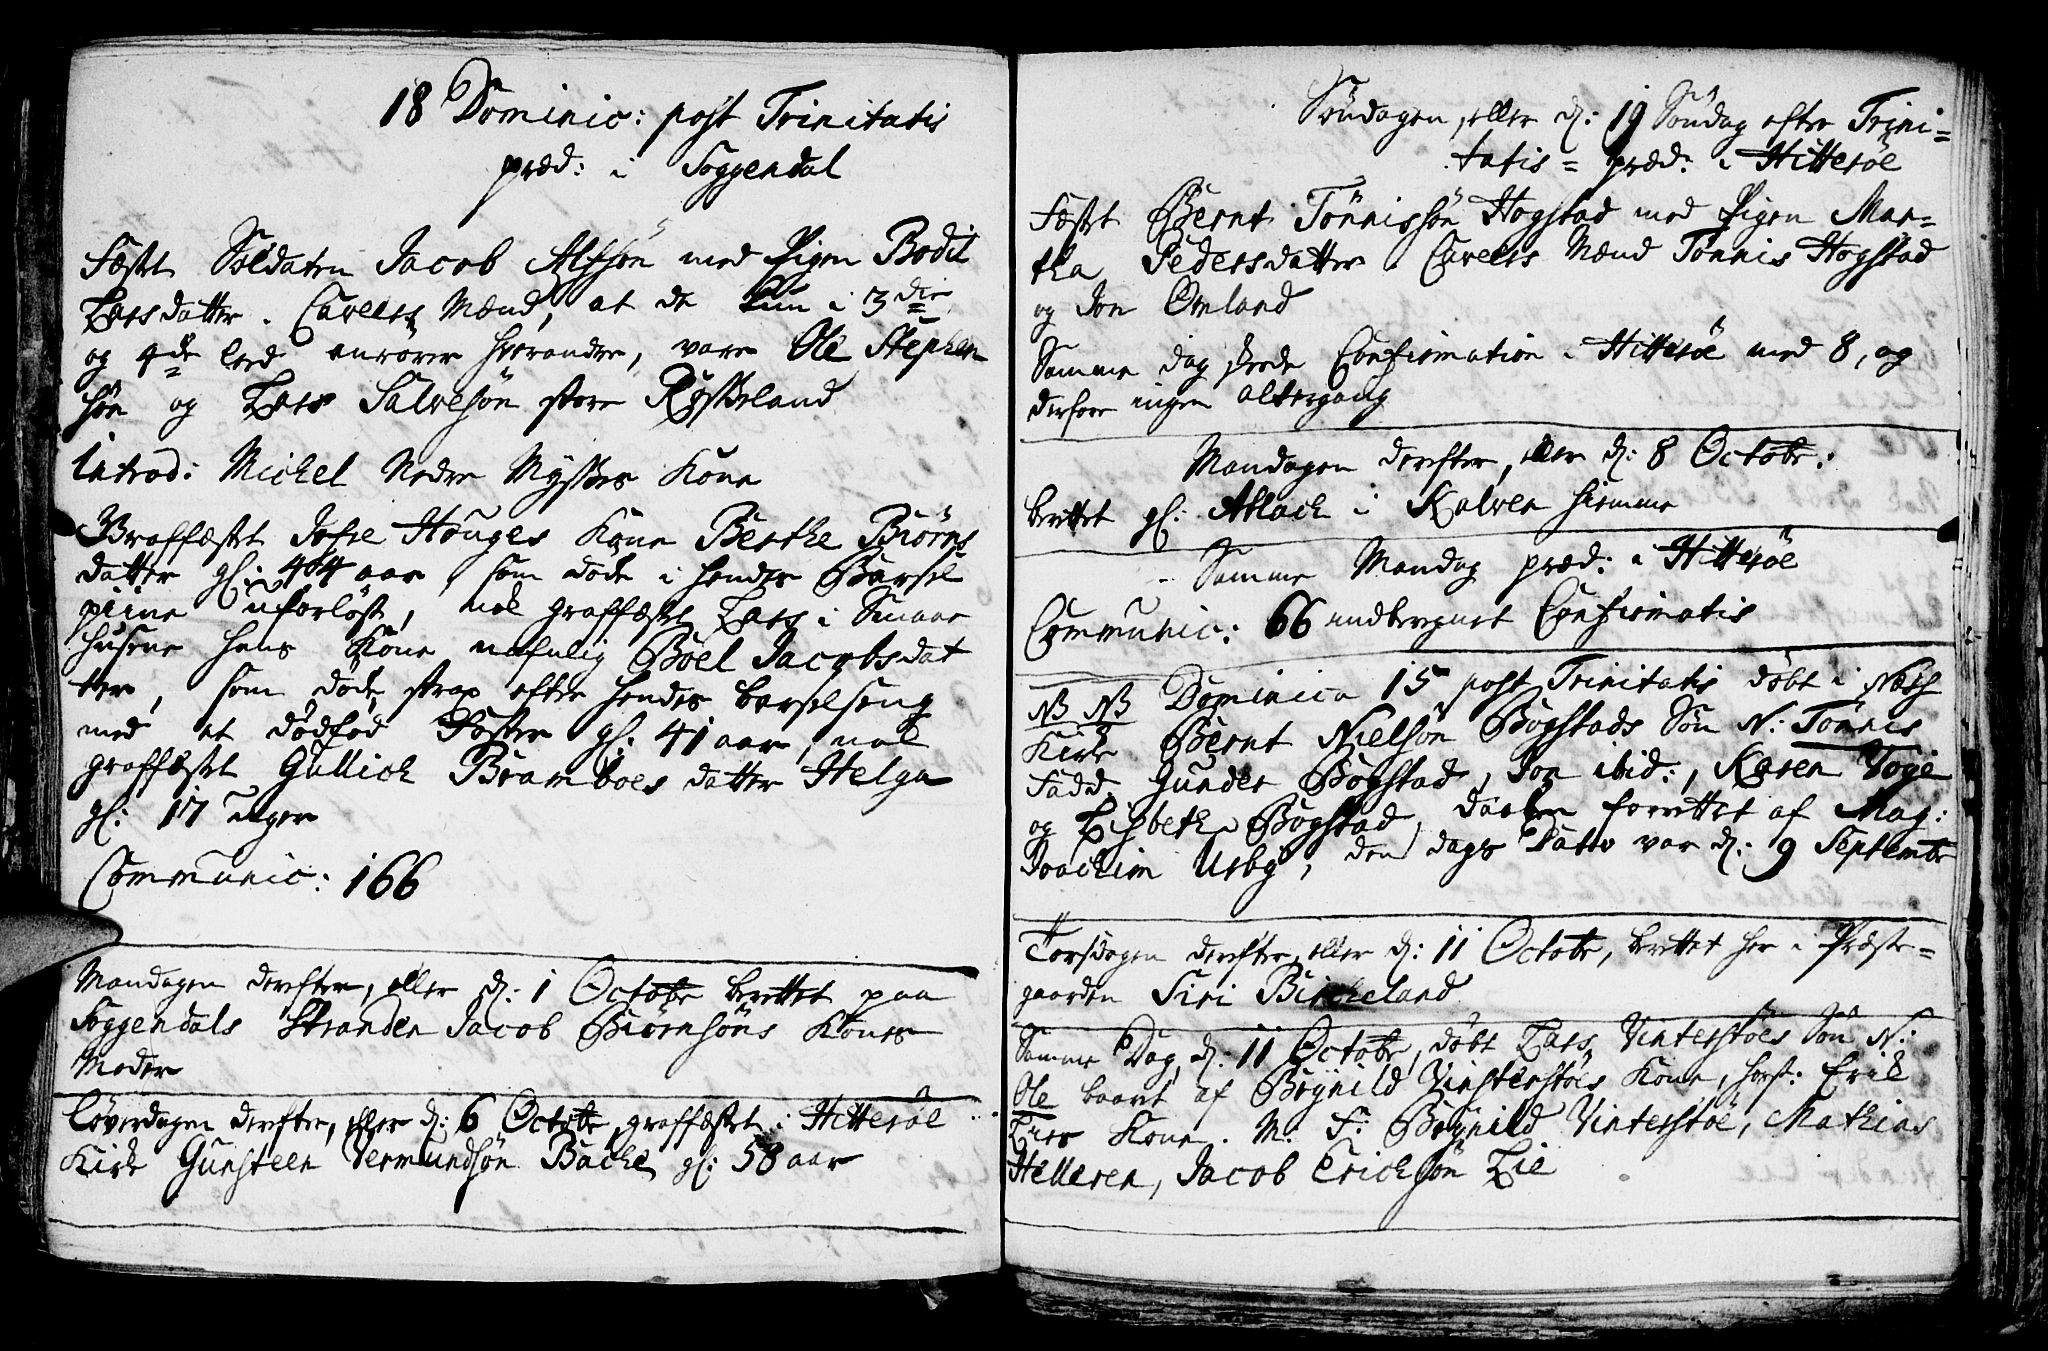 18 Dominic: post Trinitatis
præd: i Soggendal
Fæstet Soldaten Jacob Alfsøn med Pigen Bodil
Larsdatter. Caveers Mænd, at de kun i 3die
og 4de leed anrører hverandre, vare Ole Stephen
søn og Lars Salvesøn store Rysseland
Introd: Michel Nedre Mysses Kone
Graffæstet Jofre Houges Kone Berthe Biørns
datter gl: 44 aar, som døde i hendes Barsel
piine uforløst, nok graffæstet Lars i Smaae
husene hans Kone nafnlig Boel Jacobsdat
ter, som døde strax efter hendes barselseng
med et dødfød Foster gl: 41 aar, nok
graffæstet Gullich Bramboes datter Helga
gl: 17 uger
Communic: 166
Mandagen derefter, eller d: 1 Octobr berettet paa
Soggendals Stranden Jacob Biørnsøns Kones
Moder
Løverdagen derefter, eller d: 6 Octobr graffæstet i Hitterøe
Kirke Gunsteen Vermundsøn Bache gl: 58 aar
Søndagen, eller d: 19 Søndag efter Trini=
tatis = præd: i Hitterøe
Fæstet Bernt Tønnissøn Hogstad med Pigen Mar=
tha Pedersdatter. Caveers Mænd Tønnis Hogstad
og Jon Omland
Samme dag skeede Confirmation i Hitterøe med 8, og
derfore ingen altergang
Mandagen derefter, eller d: 8 Octobr:
berettet gl: Atlach i Kalven hiemme
Samme Mandag præd: i Hitterøe
Communic: 66 indberegnet Confirmatis
NB NB Dominica 15 post Trinitatis døbt i Næss
Kirke Bernt Nielsøn Bogstads Søn N: Tønnis
Fadd. Gunder Bogstad, Jon ibid:, Karen Voge
og Lisbeth Bogstad, daaben forrettet af Mag:
Joachim Usby, den dags Dato var d: 9 Septembr
Torsdagen derefter, eller d: 11 Octobr, berettet her i Præste=
gaarden Siri Bircheland
Samme Dag, d: 11 Octobr, døbt Lars Vinterstøes Søn N:
Ole baaret af Børnild Vinterstøes Kone, hosst: Erik
Lies Kone. M. F: Børnild Vinterstøe, Mathias
Helleren, Jacob Erichsøn Lie